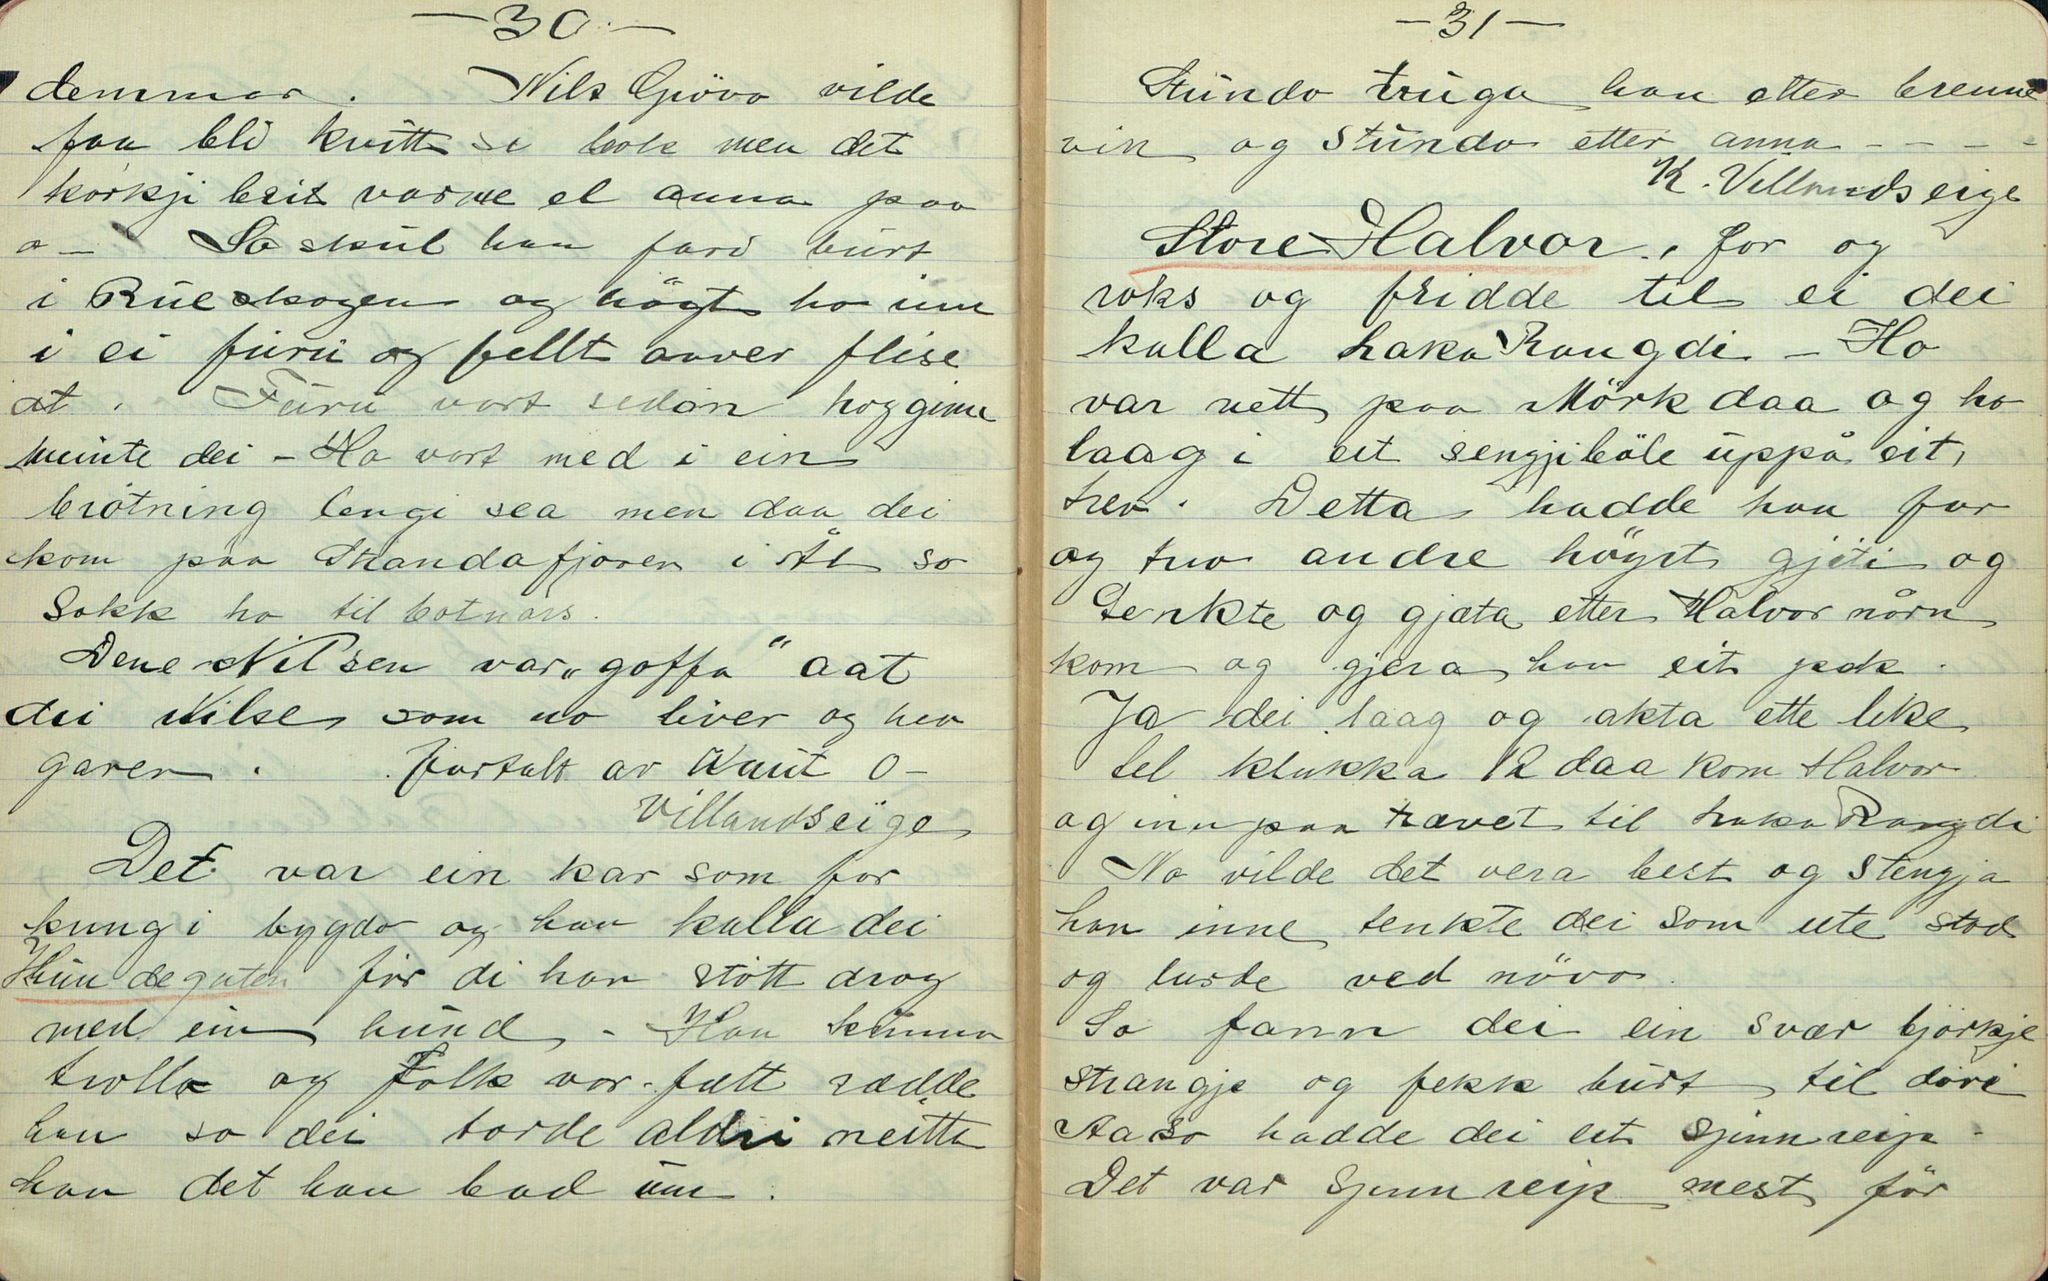 — 30 —
demmar. Nils Gjövo vilde
faa bli kvitt se bok men det
korkji beit varme el anna paa
o — So skul han fari burt
i Rueskogen og högt ho inn
i ei furu og fellt aaver flise
at. Furu vart sedan hoggimu
meinte dei — Ho vart med i ein
brötning lengi sea men daa dei
kom paa Strandafjoren i Ål so
sokk ho til botnars.
Dene Nilsen var „goffa" aat
dei Nilse som no liver og her
garen. fortalt av Knut O —
Villandseige
Det var ein kar som for
kring i bygdo og han kalla dei
Hundeguten för di han stött drog
med ein hund. — Han kunna
trolla og Folk var fælt rædde
han so dei torde aldri neitta
han det han bad um.
— 31 —
Stundo truga han etter brenne
vin og stundo etter anna - - - -
K. Villandseige
Store Halvor, for og
roks og fridde til ei dei
kalla haka Rangdi — Ho
var nett paa Mörkdaa og ho
laag i eit sengjiböle uppå eit
trev. Detta hadde han far
og tvo andre höyrt gjiti og
tenkte og gjæta etter Halvor nårn
kom og gjera han eit pek.
Ja dei laag og akta ette like
tel klukka 12 daa kom Halvor
og inn paa trævet til haka Rangdi
No vilde det vera best og stengja
han inne tenkte dei som ute stod
og lurde ved növo.
So fann dei ein svær björkje
strangje og fekk burt til döri
Aa so hadde dei eit sjinnreip.
Det var sjinnreip mest för